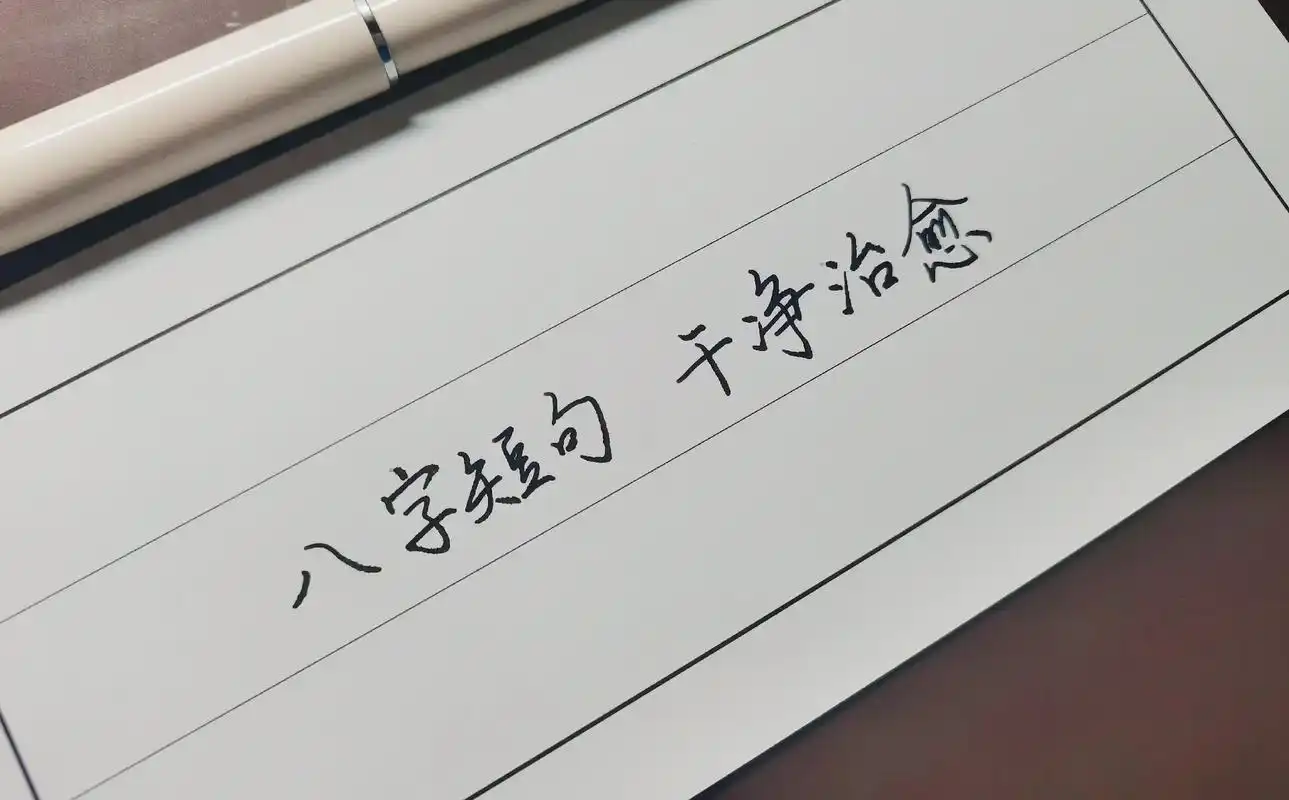 八字短句 干净治愈